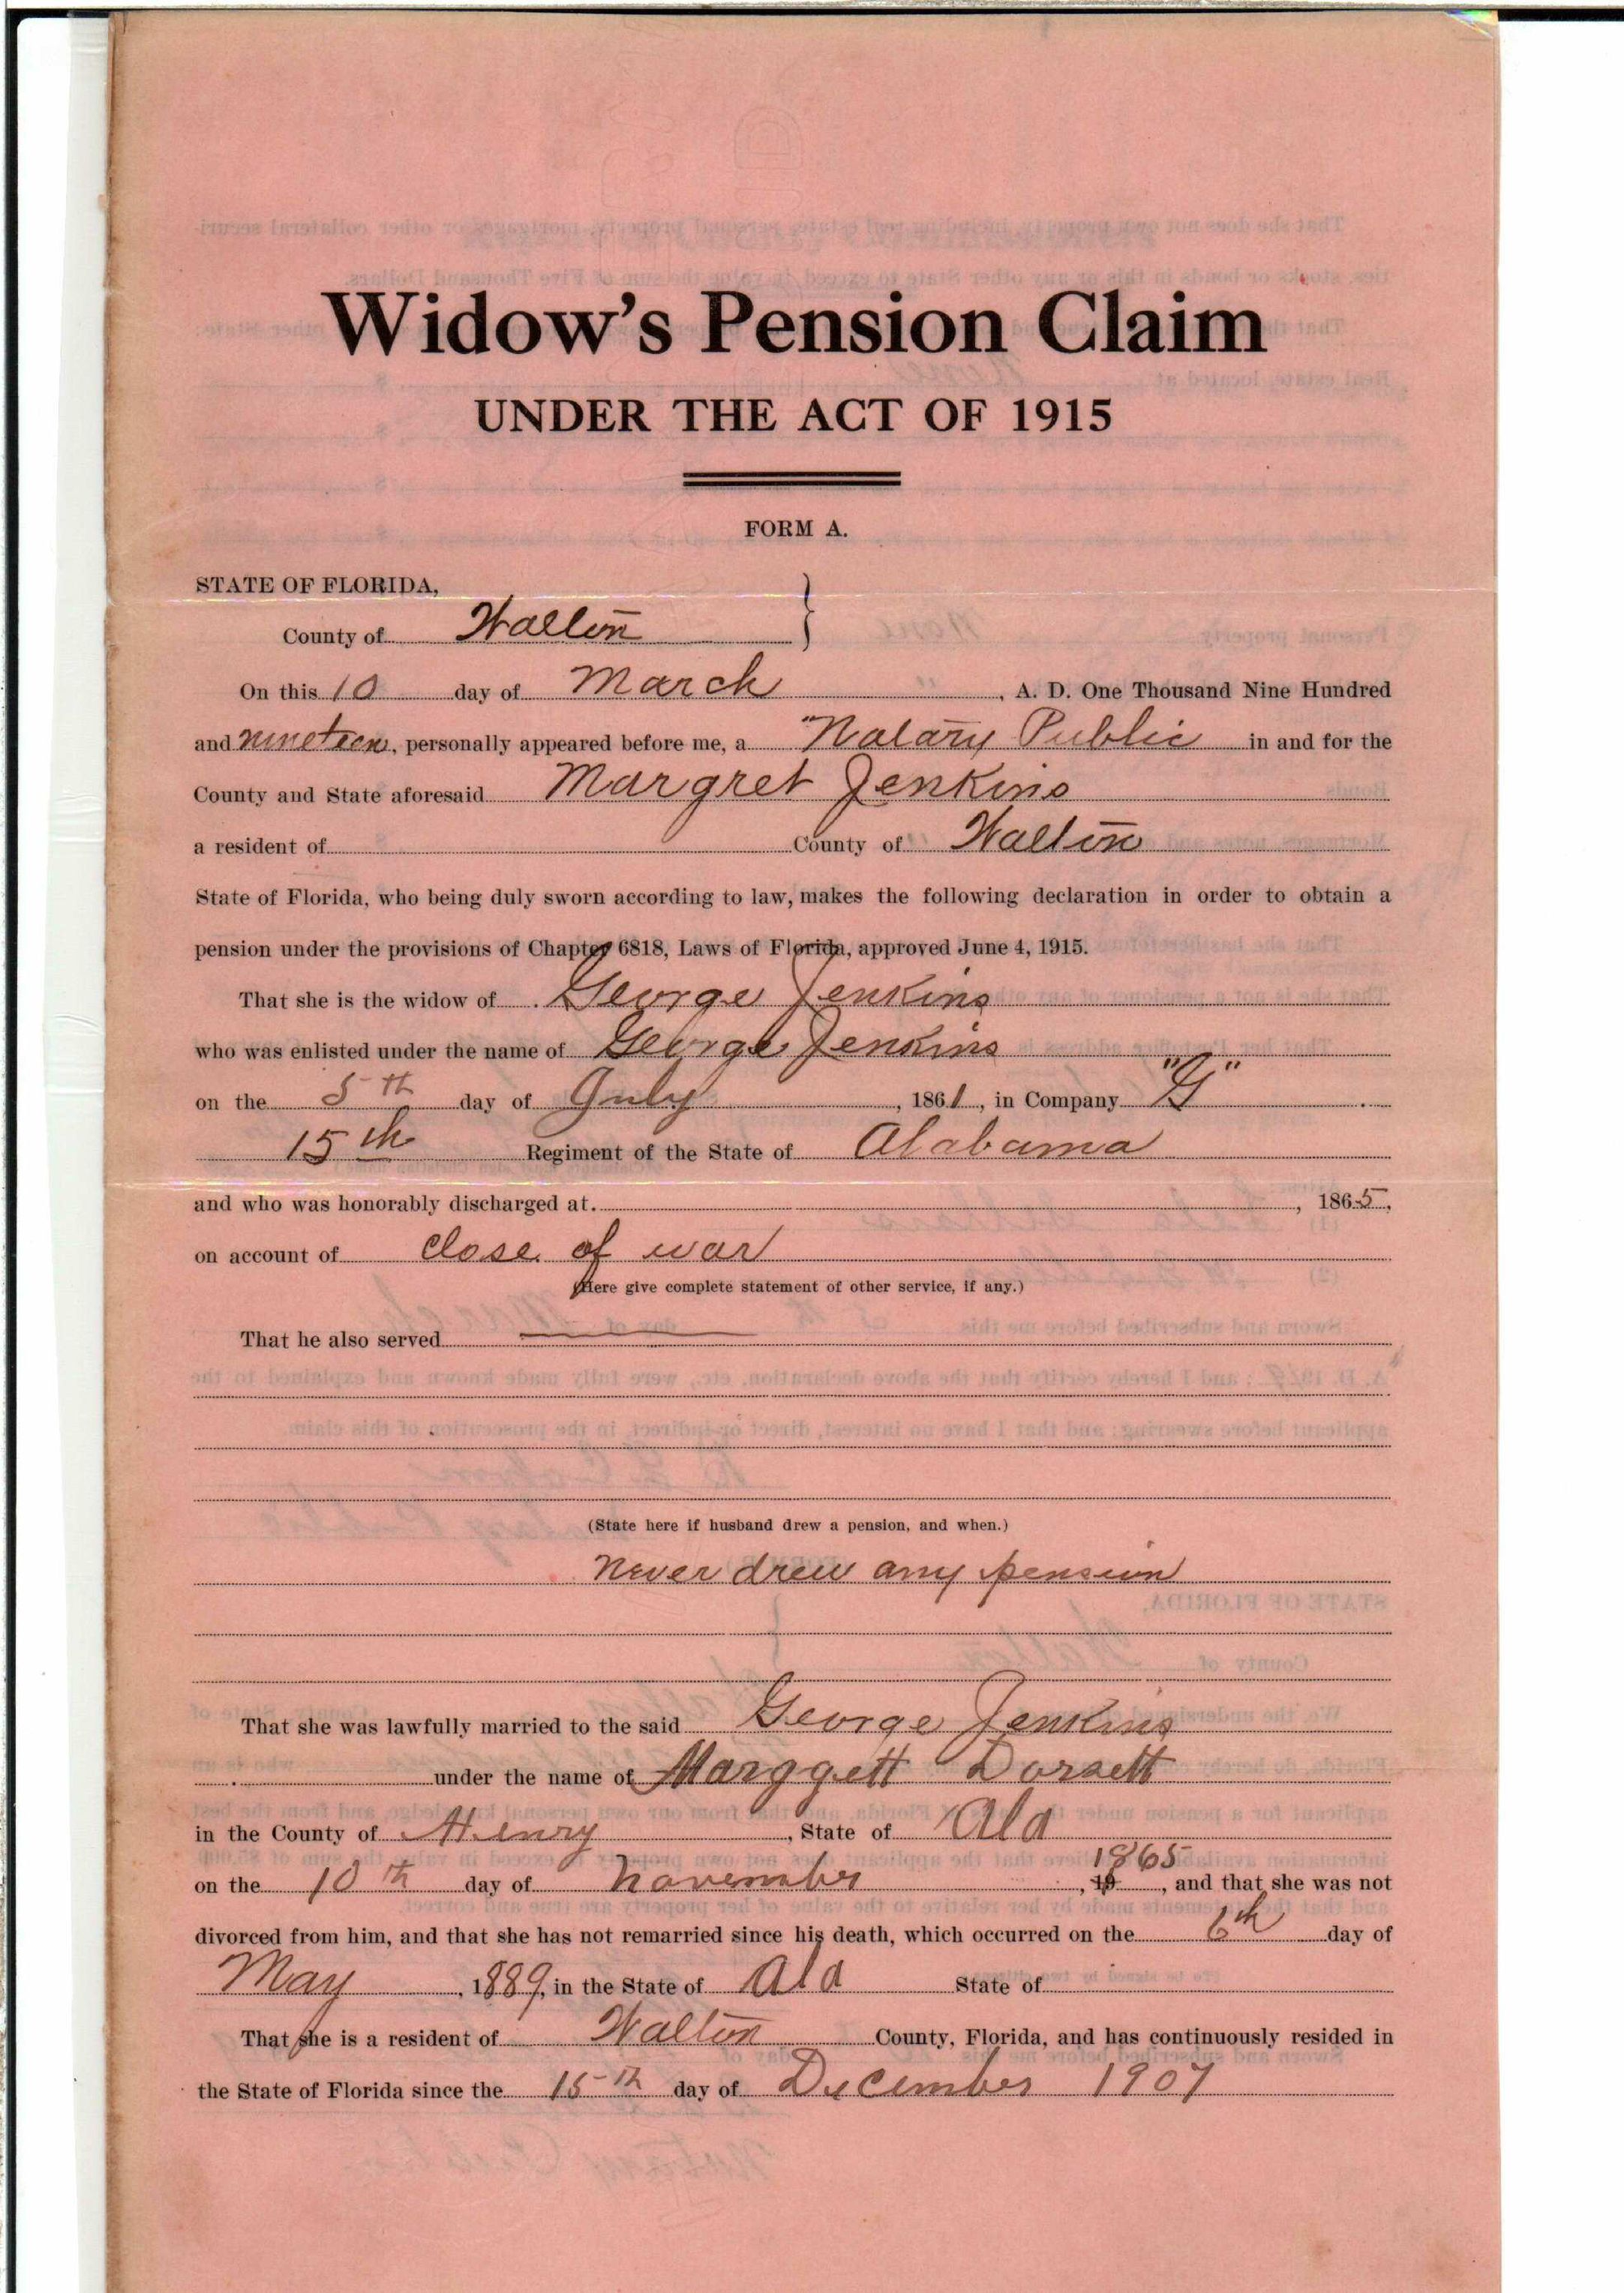 Widow's Pension Claim
UNDER THE ACT OF 1915
FORM A.
STATE OF FLORIDA,
County of Walton
On this 10 day of March, A. D. One Thousand Nine Hundred
and nineteen, personally appeared before me, a Notary Public in and for the
County and State aforesaid Margret Jenkins
a resident of County of Walton
State of Florida, who being duly sworn according to law, makes the following declaration in order to obtain a
pension under the provisions of Chapter 6818, Laws of Florida, approved June 4, 1915.
That she is the widow of George Jenkins
who was enlisted under the name of George Jenkins
on the 5th day of July, 1861, in Company "G"
15th Regiment of the State of Alabama
and who was honorably discharged at , 1865,
on account of close of war
(Here give complete statement of other service, if any.)
That he also served
(State here if husband drew a pension, and when.)
Never drew any pension
That she was lawfully married to the said George Jenkins
under the name of Marggett Dorsett
in the County of Henry, State of Ala
on the 10th day of November, 1865, and that she was not
divorced from him, and that she has not remarried since his death, which occurred on the 6th day of
May, 1889, in the State of Ala State of
That she is a resident of Walton County, Florida, and has continuously resided in
the State of Florida since the 15th day of December 1907